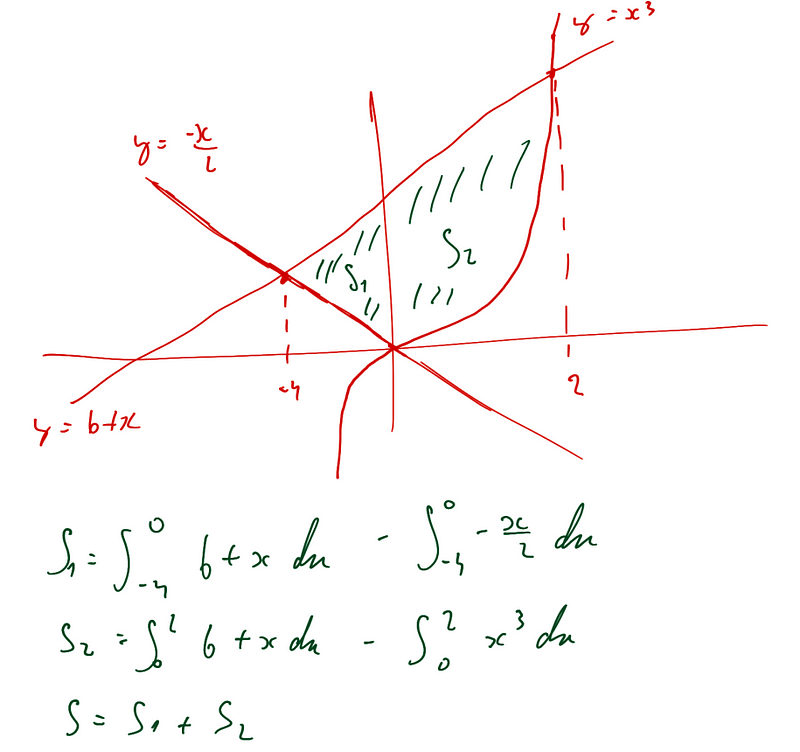 y = x³
y = -x/2
S₁
S₂
-4
2
y = 6+x
S₁ = ∫₋₄⁰ 6 + x dx - ∫₋₄⁰ - x/2 dx
S₂ = ∫₀² 6 + x dx - ∫₀² x³ dx
S = S₁ + S₂